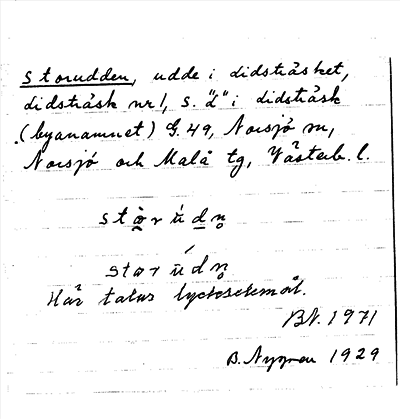 Storudden, udde i didsträsket,
didsträsk nr 1, s. "d" i didsträsk
(byanamnet) G. 49, Norsjö sn,
Norsjö och Malå tg, Västerb. l.
stòr ú dn̥
stor ú dn̥
Här talas lyckselemål.
BN. 1971
B. Nygren 1929